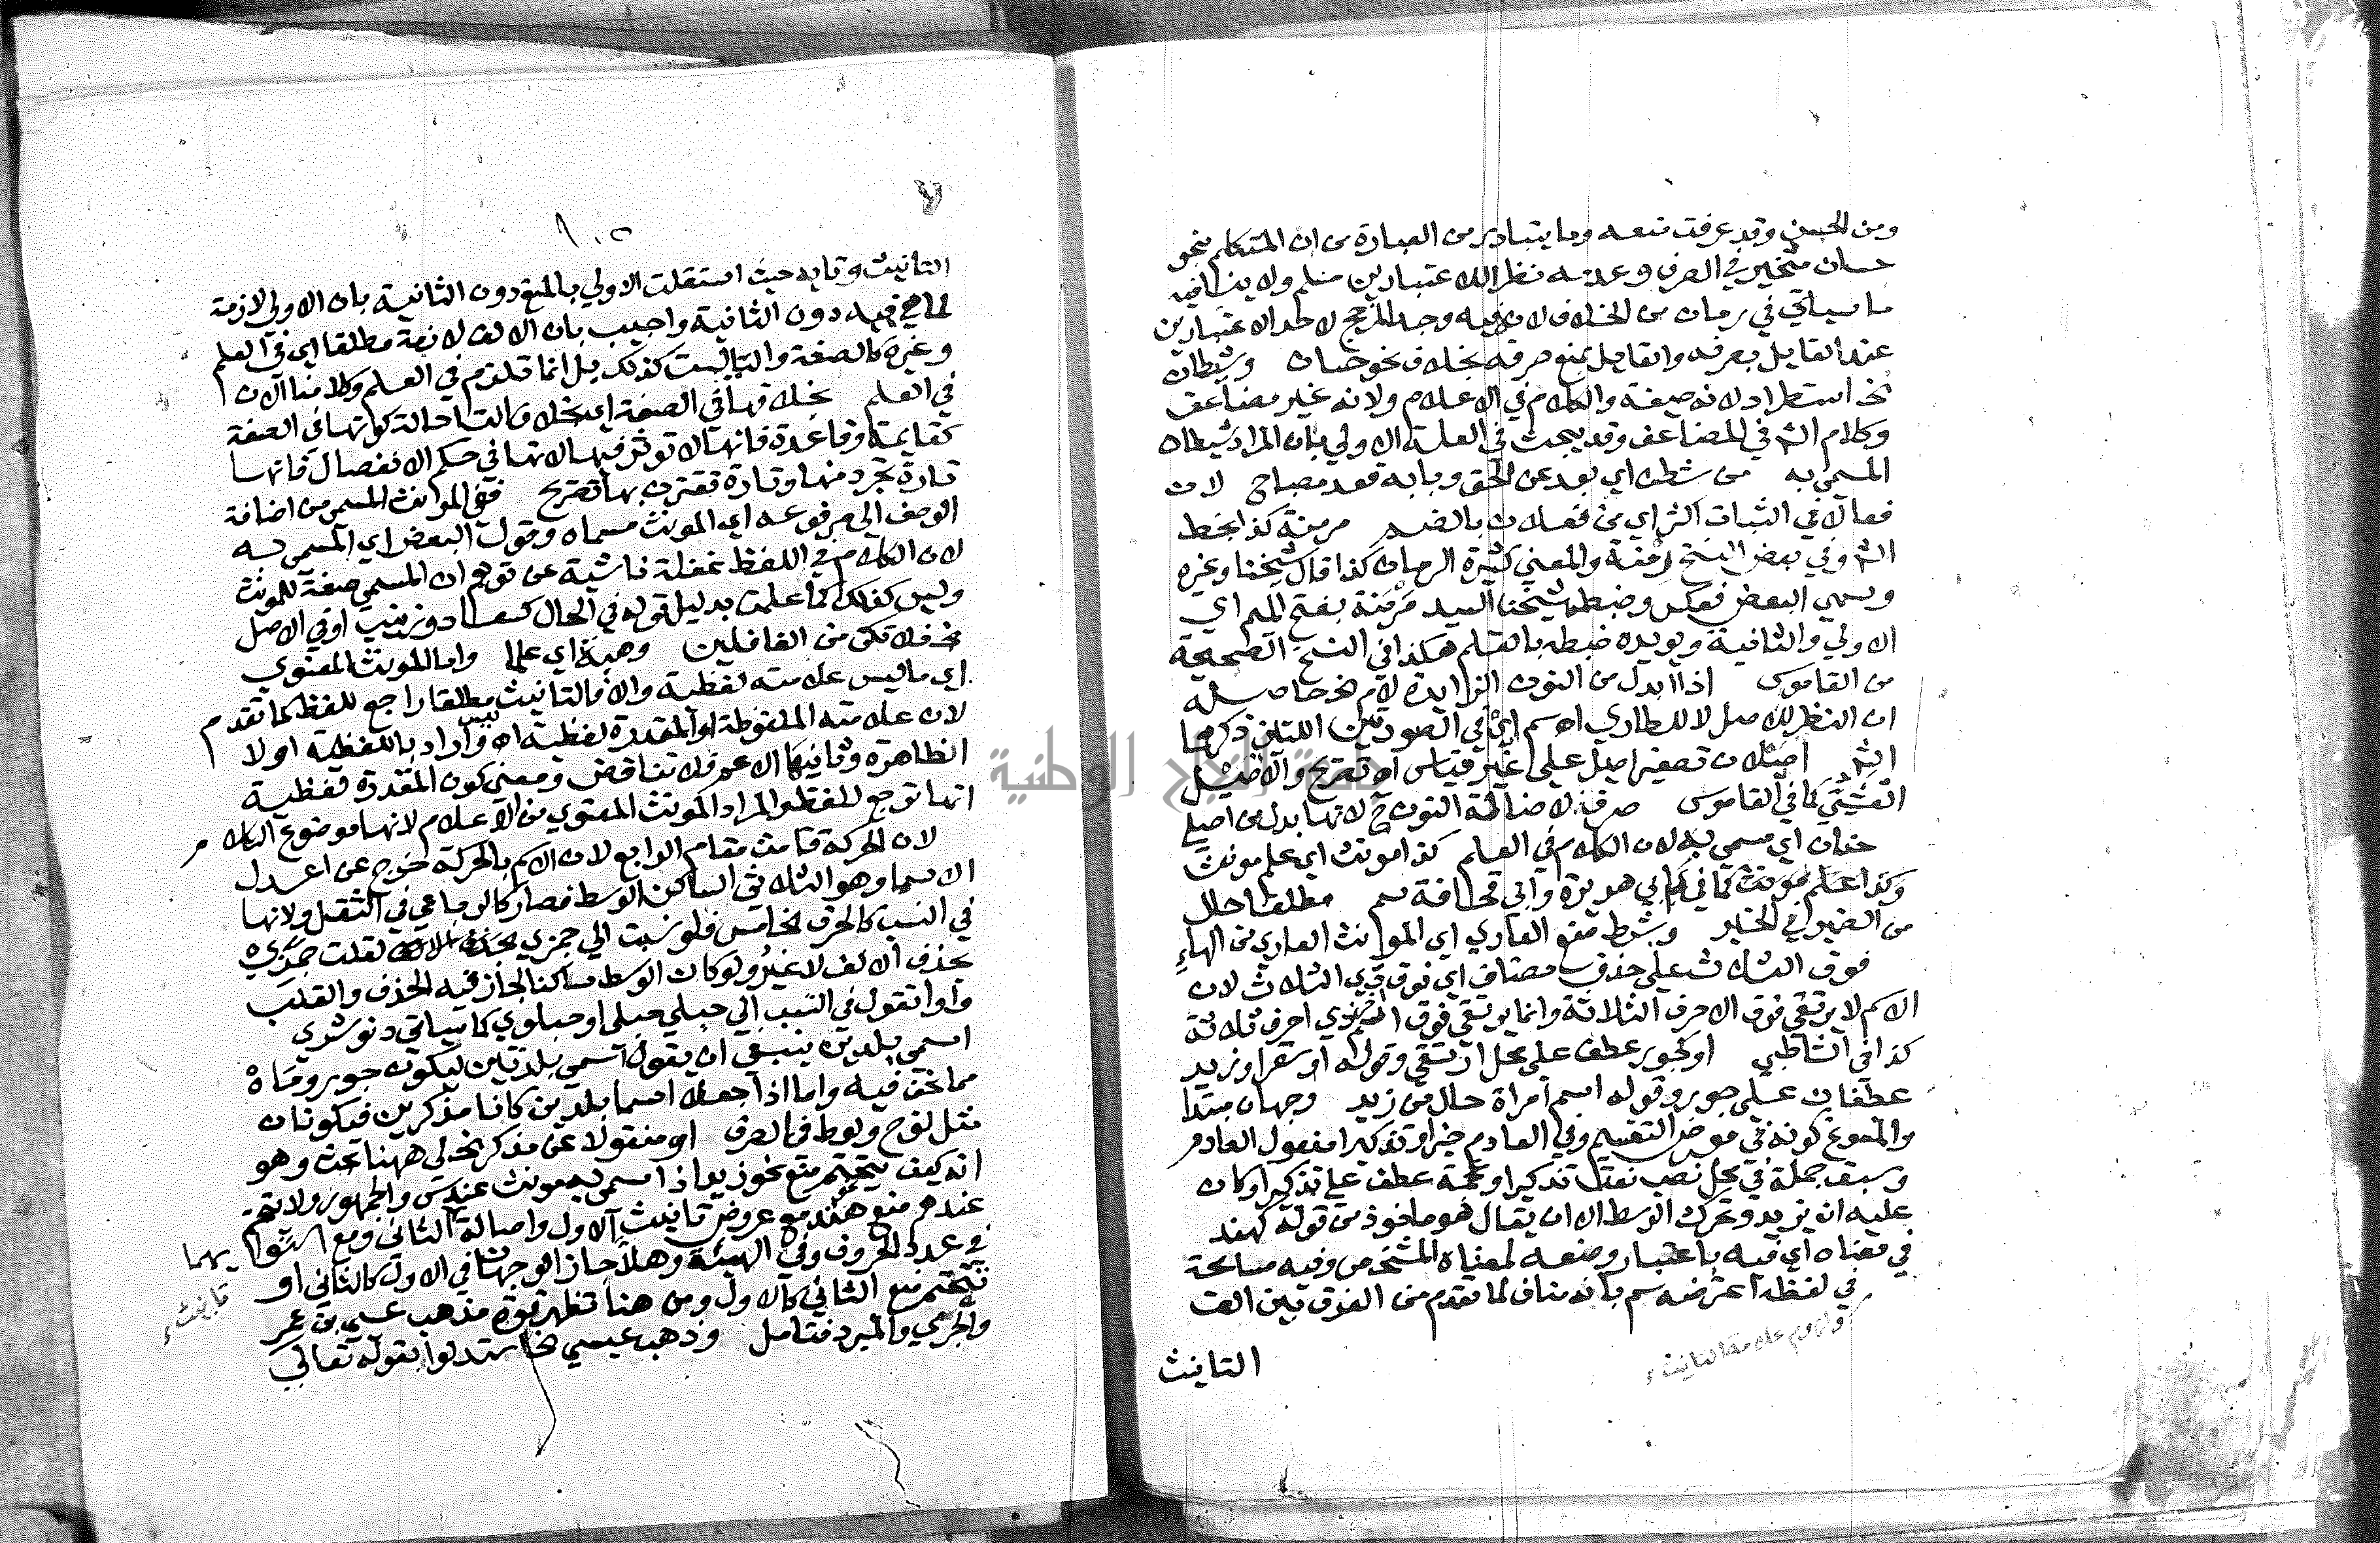 ومن الحسن وقد عرفت منعه وما يتبادر من العبارة من ان المتكلم بنحو
حسان متخير في الصرف وعدمه نظرا للاعتبارين مسلم ولا ينافيه
ما سياتي في رمان من الخلاف لان فيه وجد المرجح لاحد الاعتبارين
عند القايل بصرفه والقايل بمنع صرفه بخلاف نحو حسان وشيطان
نخ استطراد لانه صيغة والكلام في الاعلام ولانه غير مضاعف
وكلام الش في المضاعف وقد يبحث في العلة الاولي بان المراد شيطان
المسمي به من شطن اي بعد عن الحق وبابه قعد مصباح لان
فعالا في النبات اكثر اي من فعلان بالضم مرمنة كذا بخط
الش وفي بعض النسخ رمنة والمعني كثيرة الرمان كذا قال شيخنا وغيره
وسمي البعض فعكس وضبطه شيخنا السيد مرمنة بفتح الميم اي
الاولي والثانية ويويده ضبطه بالقلم هكذا في النسخ الصحيحة
من القاموس اذا ابدل من النون الزايدة لام نخ حاصله
ان النظر للاصل لا للطاري اه سم اي في الصورتين اللتين ذكرهما
الش اصيلان تصغير اصيل علي غير قياس اه تصريح والاصيل
العشي كما في القاموس صرف لاصالة النون ح لانها بدل من اصلي
حنان اي مسمي به لان الكلام في العلم كذا مونث اي علم مونث
وكذا علم مونث كما في ابي هريرة وابي قحافة سم مطلقا حال
من الضمير في الخبر وشرط منع العاري اي المونث العاري من الهاء
فوق الثلاث علي حذف مضاف اي فوق ذي الثلاث لان
الاسم لا يرتقي فوق الاحرف الثلاثة وانما يرتقي فوق اسم ذي احرف ثلاثة
كذا في الشاطبي او كجور عطف علي محل ارتقي وقوله او سقر او زيد
عطفان علي جور وقوله اسم امراة حال من زيد وجهان مبتدا
والمسوغ كونه في معرض التقسيم وفي العادم خبر او تذكيرا مفعول العادم
وسبق جملة في محل نصب نعت تذكيرا وعجمة عطف علي تذكيرا وكان
عليه ان يزيد وتحرك الوسط الا ان يقال هو ماخوذ من قوله كهند
في معناه اي فيه باعتبار وضعه لمعناه المشخص وفيه مسامحة
في لفظه اعترضه سم بانه مناف لما تقدم من الفرق بين الف
التانيث
التانيث وتايه حيث استقلت الاولي بالمنع دون الثانية بان الاولي لازمة
لما هي فيه دون الثانية واجيب بان الالف لازمة مطلقا اي في العلم
وغيره كالصفة والتا ليست كذلك بل انما تلزم في العلم وكلامنا الان
في العلم بخلافها في الصفة اي بخلاف التا حالة كونها في الصفة
كقايمة وقاعدة فانها لا توثر فيها لانها في حكم الانفصال فانها
تارة تجرد منها وتارة تقترن بها تصريح ففي المونث المسمي من اضافة
الوصف الي مرفوعه اي المونث مسماه وقول البعض اي المسمي به
لان الكلام في اللفظ غفلة ناشية عن توهم ان المسمي صفة للمونث
وليس كذلك كما علمت بدليل قوله في الحال كسعاد وزينب او في الاصل
نخ فلا تكن من الغافلين وهبة اي علما واما المونث المعنوي
اي ما ليس علامته لفظية والا فالتانيث مطلقا راجع للفظ كما تقدم
لان علامته الملفوظة او المقدرة لفظية اه وس اراد باللفظية اولا
الظاهرة وثانيا الاعم فلا تناقض ومعني كون المقدرة لفظية
انها ترجع للفظ والمراد المونث المعنوي من الاعلام لانها موضوع الكلام
لان الحركة قامت مقام الرابع لان الاسم بالحركة خرج عن اعدل
الاسما وهو الثلاثي الساكن الوسط فصار كالرباعي في الثقل ولانها
في النسب كالحرف الخامس فلو نسبت الي جمزي لقلت جمزي
بحذف الالف لا غير ولو كان الوسط ساكنا لجاز فيه الحذف والقلب
واوا تقول في النسب الي حبلي حبلي او حبلوي كما سياتي دنوشري
اسمي بلدين ينبغي ان يقول اسمي بلدتين ليكون جور وماه
مما نحن فيه واما اذا جعلا اسما بلدين كانا مذكرين فيكونان
مثل نوح ولوط في الصرف او منقولا عن مذكر نخ لي ههنا بحث وهو
انه كيف يتحتم منع نحو زيد اذا سمي به مونث عند س والجمهور ولا يتحتم
عندهم منع هند مع عروض تانيث الاول واصالة الثاني ومع استوايهما
في عدد الحروف وفي الهيئة وهلا جاز الوجهان في الاول كالثاني او
تحتم منع الثاني كالاول ومن هنا تظهر قوة مذهب عيسي بن عمر
والجرمي والمبرد فتامل وذهب عيسي نخ استدلوا بقوله تعالي
جامعة النجاح الوطنية